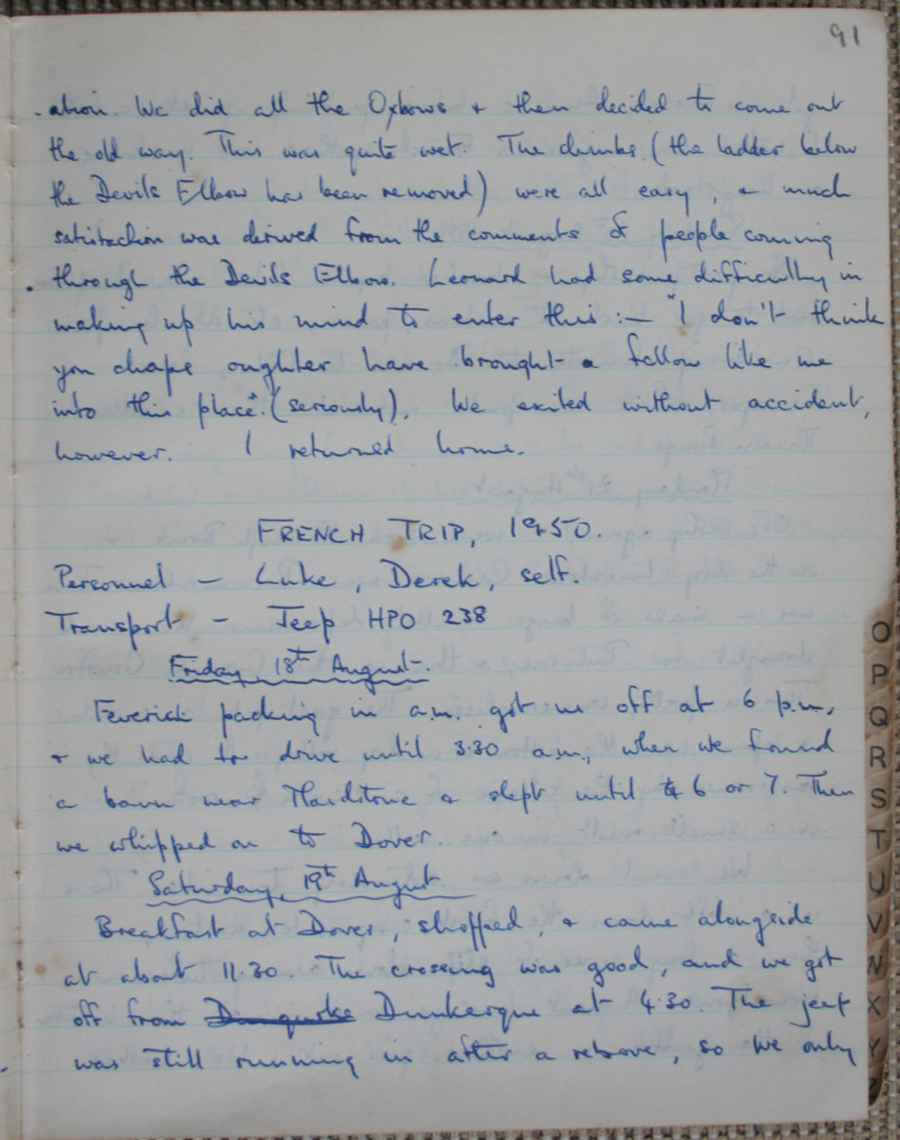 91
-ation. We did all the Oxbows & then decided to come out
the old way. This was quite wet. The climbs (the ladder below
the Devils Elbow has been removed) were all easy, & much
satisfaction was derived from the comments of people coming
through the Devils Elbow. Leonard had some difficulty in
making up his mind to enter this:— "I don't think
you chaps oughter have brought a fellow like me
into this place". (seriously). We exited without accident,
however. I returned home.
FRENCH TRIP, 1950.
Personnel — Luke, Derek, self.
Transport — Jeep HPO 238
Friday, 18th August.
Feverick packing in a.m. got us off at 6 p.m,
& we had to drive until 3.30 a.m., when we found
a barn near Maidstone & slept until 6 or 7. Then
we whipped on to Dover.
Saturday, 19th August
Breakfast at Dover, shopped, & came alongside
at about 11.30. The crossing was good, and we got
off from Dunquerke Dunkerque at 4.30. The jeep
was still running in after a rebore, so we only
O
P
Q
R
S
T
U
V
W
X
Y
Z